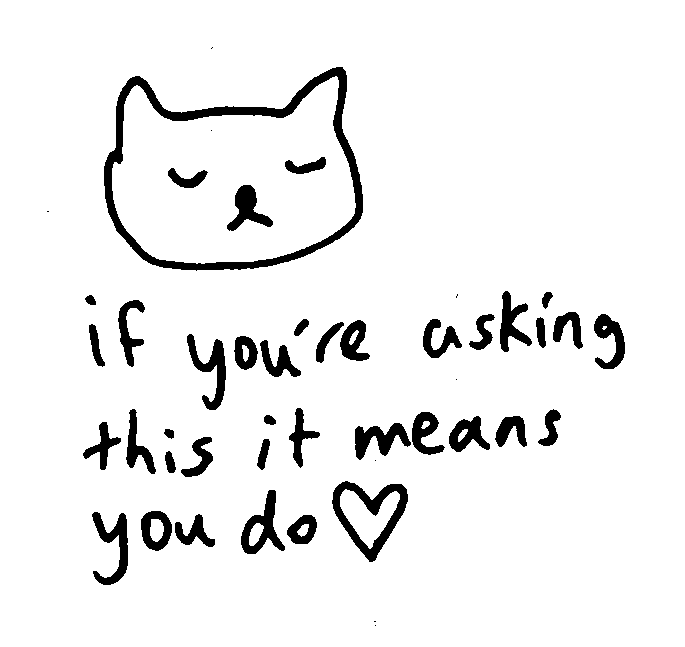 if you're asking
this it means
you do♡